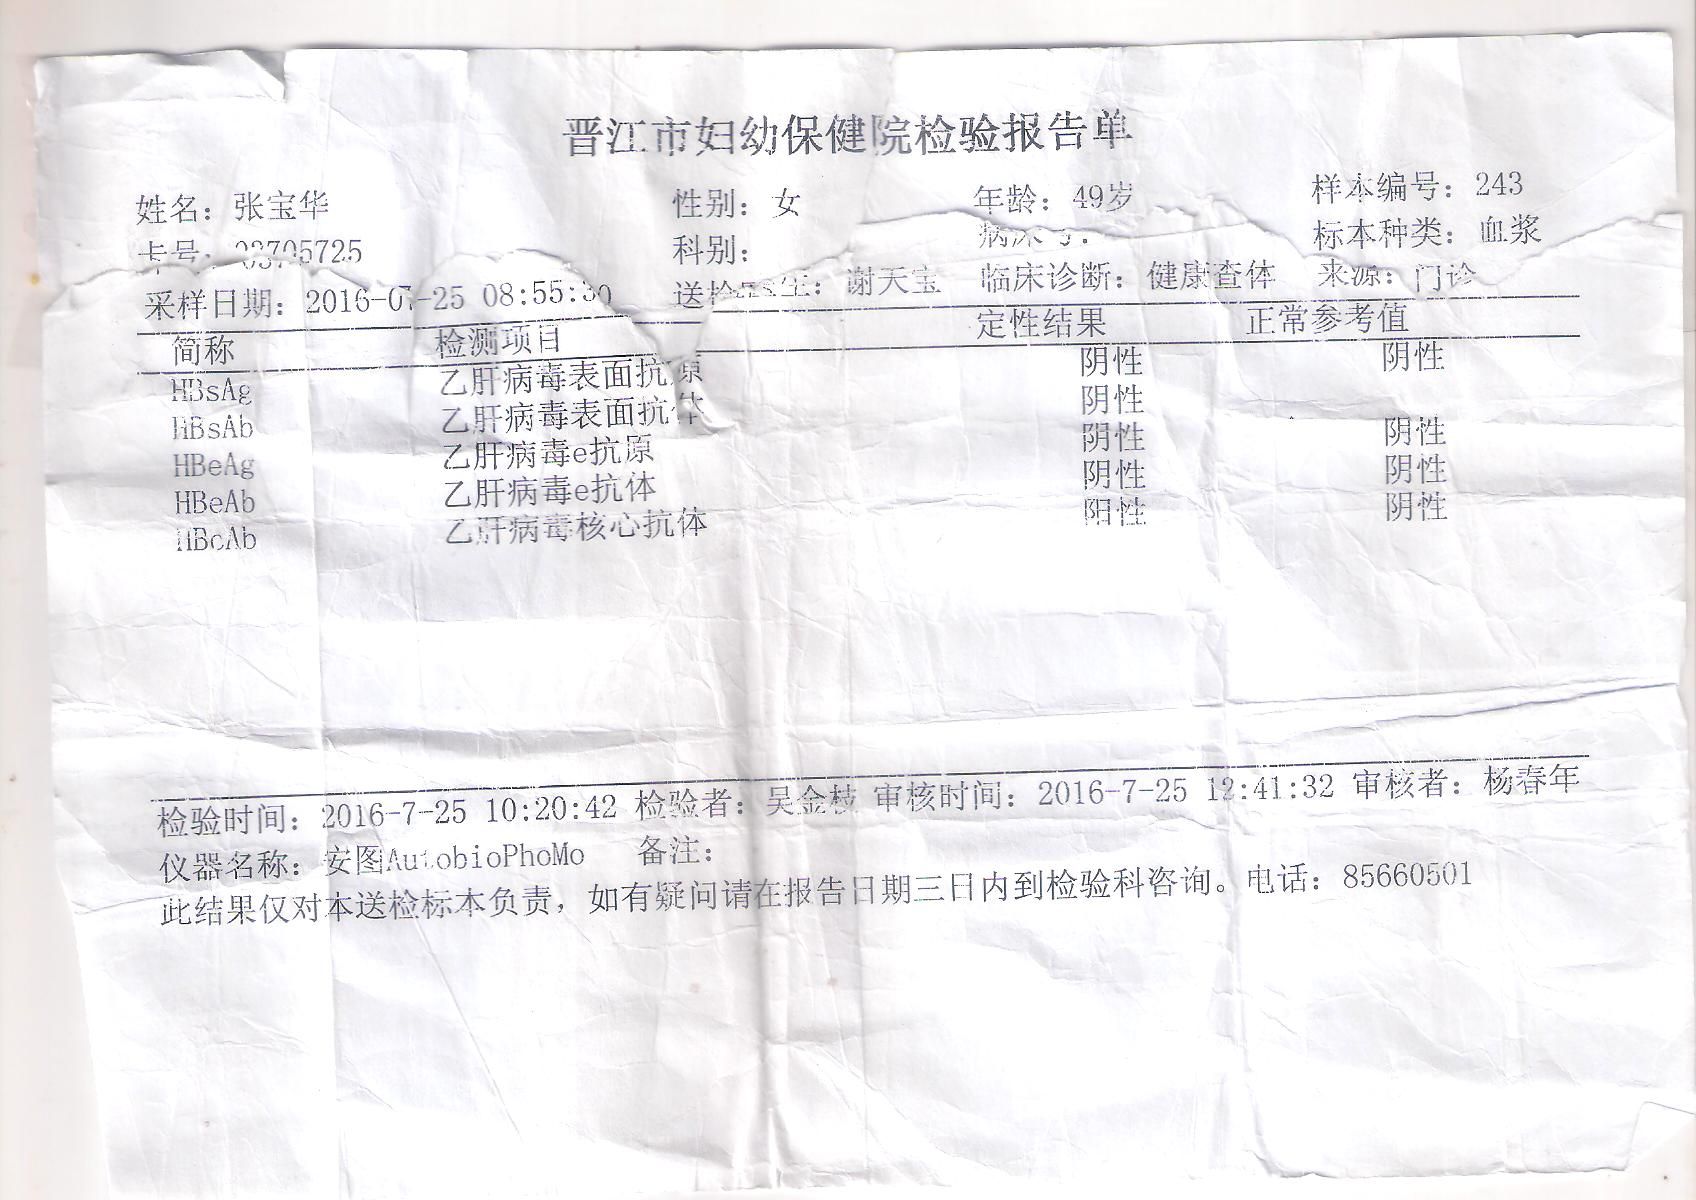 晋江市妇幼保健院检验报告单
姓名：张宝华 性别：女 年龄：49岁 样本编号：243
卡号：03705725 科别： 标本种类：血浆
采样日期：2016-07-25 08:55:30 送检医生：谢天宝 临床诊断：健康查体 来源：门诊
简称 检测项目 定性结果 正常参考值
HBsAg 乙肝病毒表面抗原 阴性 阴性
HBsAb 乙肝病毒表面抗体 阴性
HBeAg 乙肝病毒e抗原 阴性 阴性
HBeAb 乙肝病毒e抗体 阴性 阴性
HBcAb 乙肝病毒核心抗体 阴性 阴性
检验时间：2016-7-25 10:20:42 检验者：吴金枝 审核时间：2016-7-25 12:41:32 审核者：杨春年
仪器名称：安图AutobioPhoMo 备注：
此结果仅对本送检标本负责，如有疑问请在报告日期三日内到检验科咨询。电话：85660501